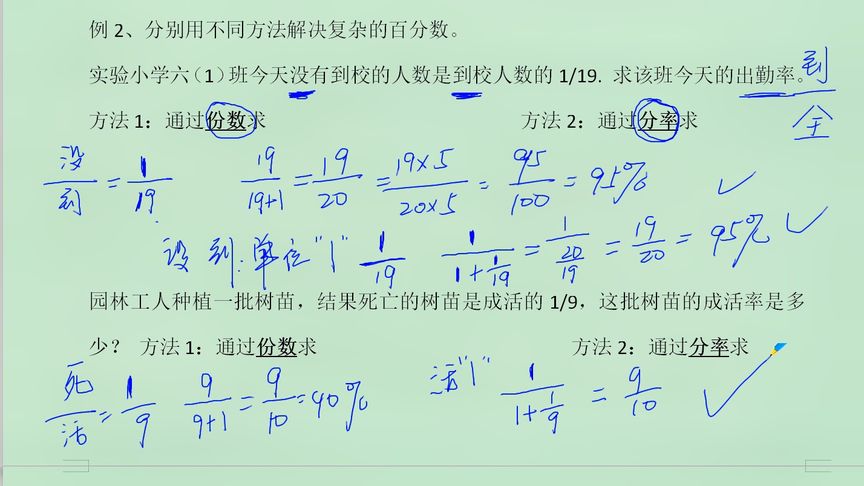 例 2、分别用不同方法解决复杂的百分数。
实验小学六（1）班今天没有到校的人数是到校人数的 1/19. 求该班今天的出勤率。 到/全
方法 1：通过份数求 方法 2：通过分率求
没/到 = 1/19 19/19+1 = 19/20 = 19×5/20×5 = 95/100 = 95% ✓
设 到:单位"1" 1/19 1/1+1/19 = 1/20/19 = 19/20 = 95% ✓
园林工人种植一批树苗，结果死亡的树苗是成活的 1/9，这批树苗的成活率是多
少？ 方法 1：通过份数求 方法 2：通过分率求
死/活 = 1/9 9/9+1 = 9/10 = 90% 活"1" 1/1+1/9 = 9/10 ✓